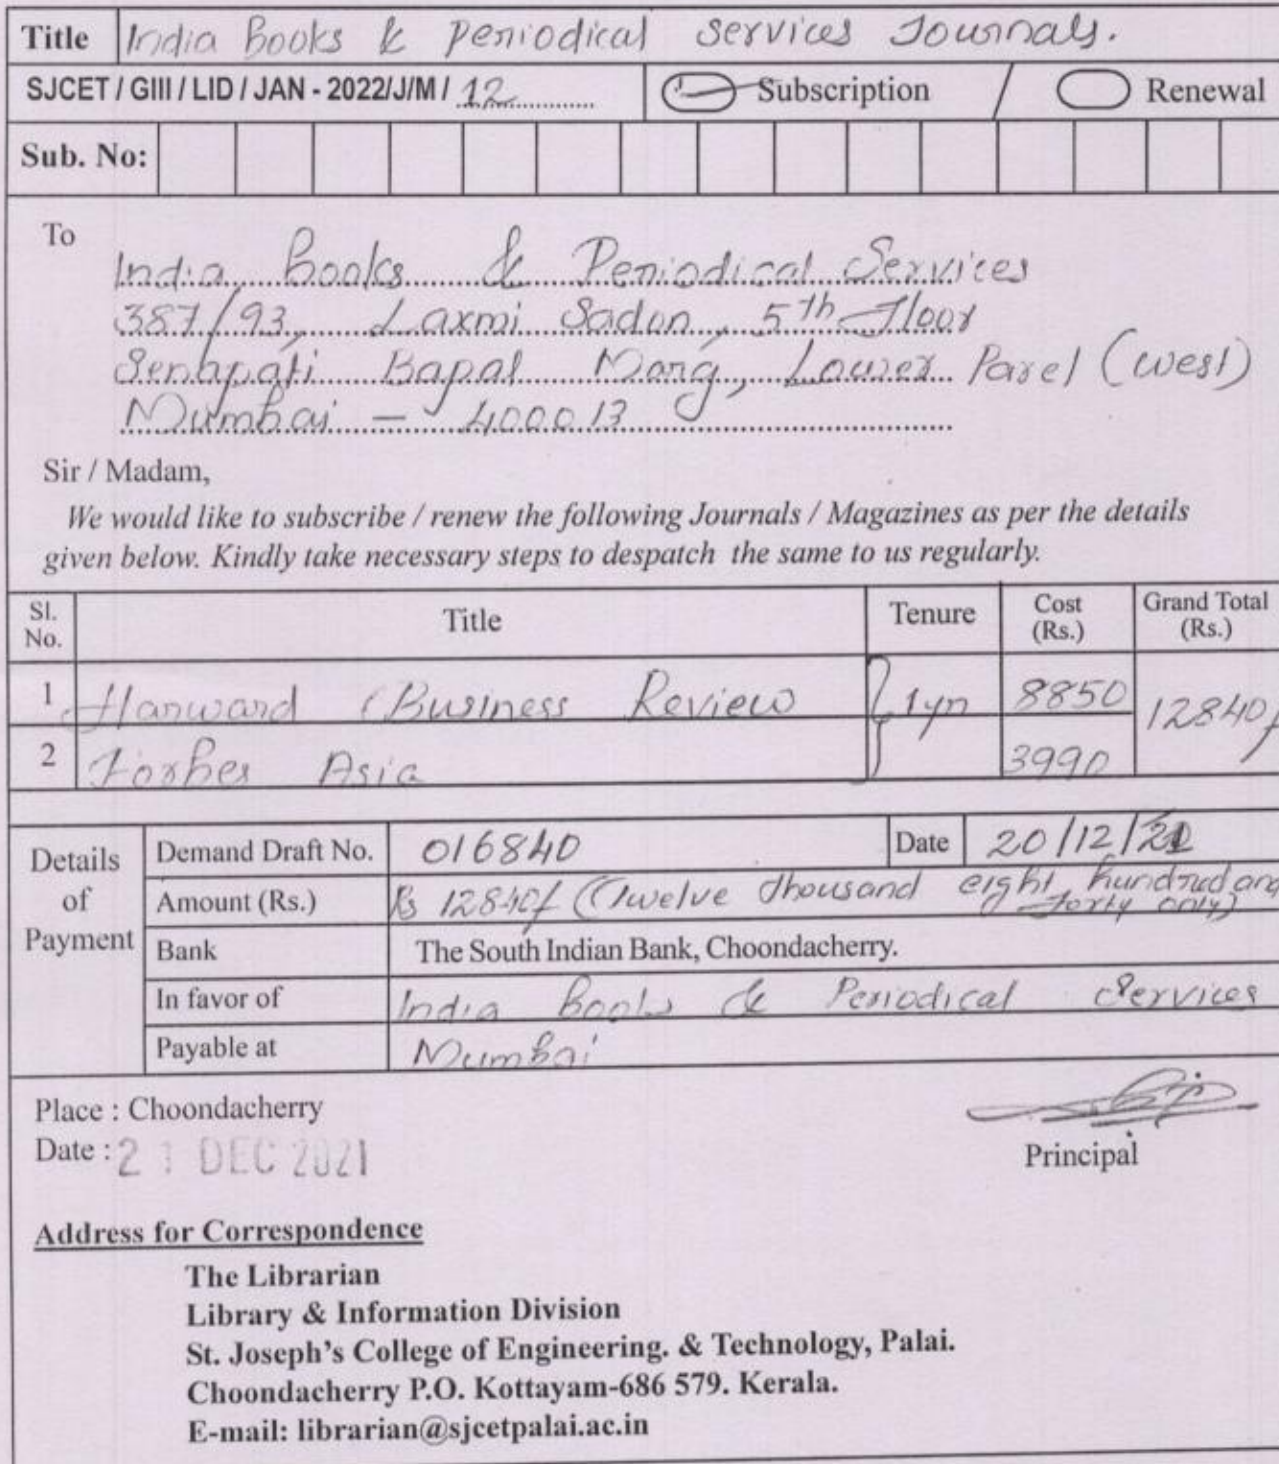 Title India Books & Periodical Services Journals.
SJCET / GIII / LID / JAN - 2022/J/M/ 12 Subscription / Renewal
Sub. No:
To
India Books & Periodical Services
387/93, Laxmi Sadan, 5th Floor
Senapati Bapat Marg, Lower Parel (West)
Mumbai - 400013
Sir / Madam,
We would like to subscribe / renew the following Journals / Magazines as per the details
given below. Kindly take necessary steps to despatch the same to us regularly.
Sl. No. Title Tenure Cost (Rs.) Grand Total (Rs.)
1 Harward Business Review 1yr 8850 12840/
2 Forbes Asia 3990
Details of Payment
Demand Draft No. 016840 Date 20/12/21
Amount (Rs.) Rs 12840/ (Twelve thousand eight hundred and
forty only)
Bank The South Indian Bank, Choondacherry.
In favor of India Books & Periodical Services
Payable at Mumbai
Place : Choondacherry
Date : 21 DEC 2021
Principal
Address for Correspondence
The Librarian
Library & Information Division
St. Joseph's College of Engineering. & Technology, Palai.
Choondacherry P.O. Kottayam-686 579. Kerala.
E-mail: librarian@sjcetpalai.ac.in